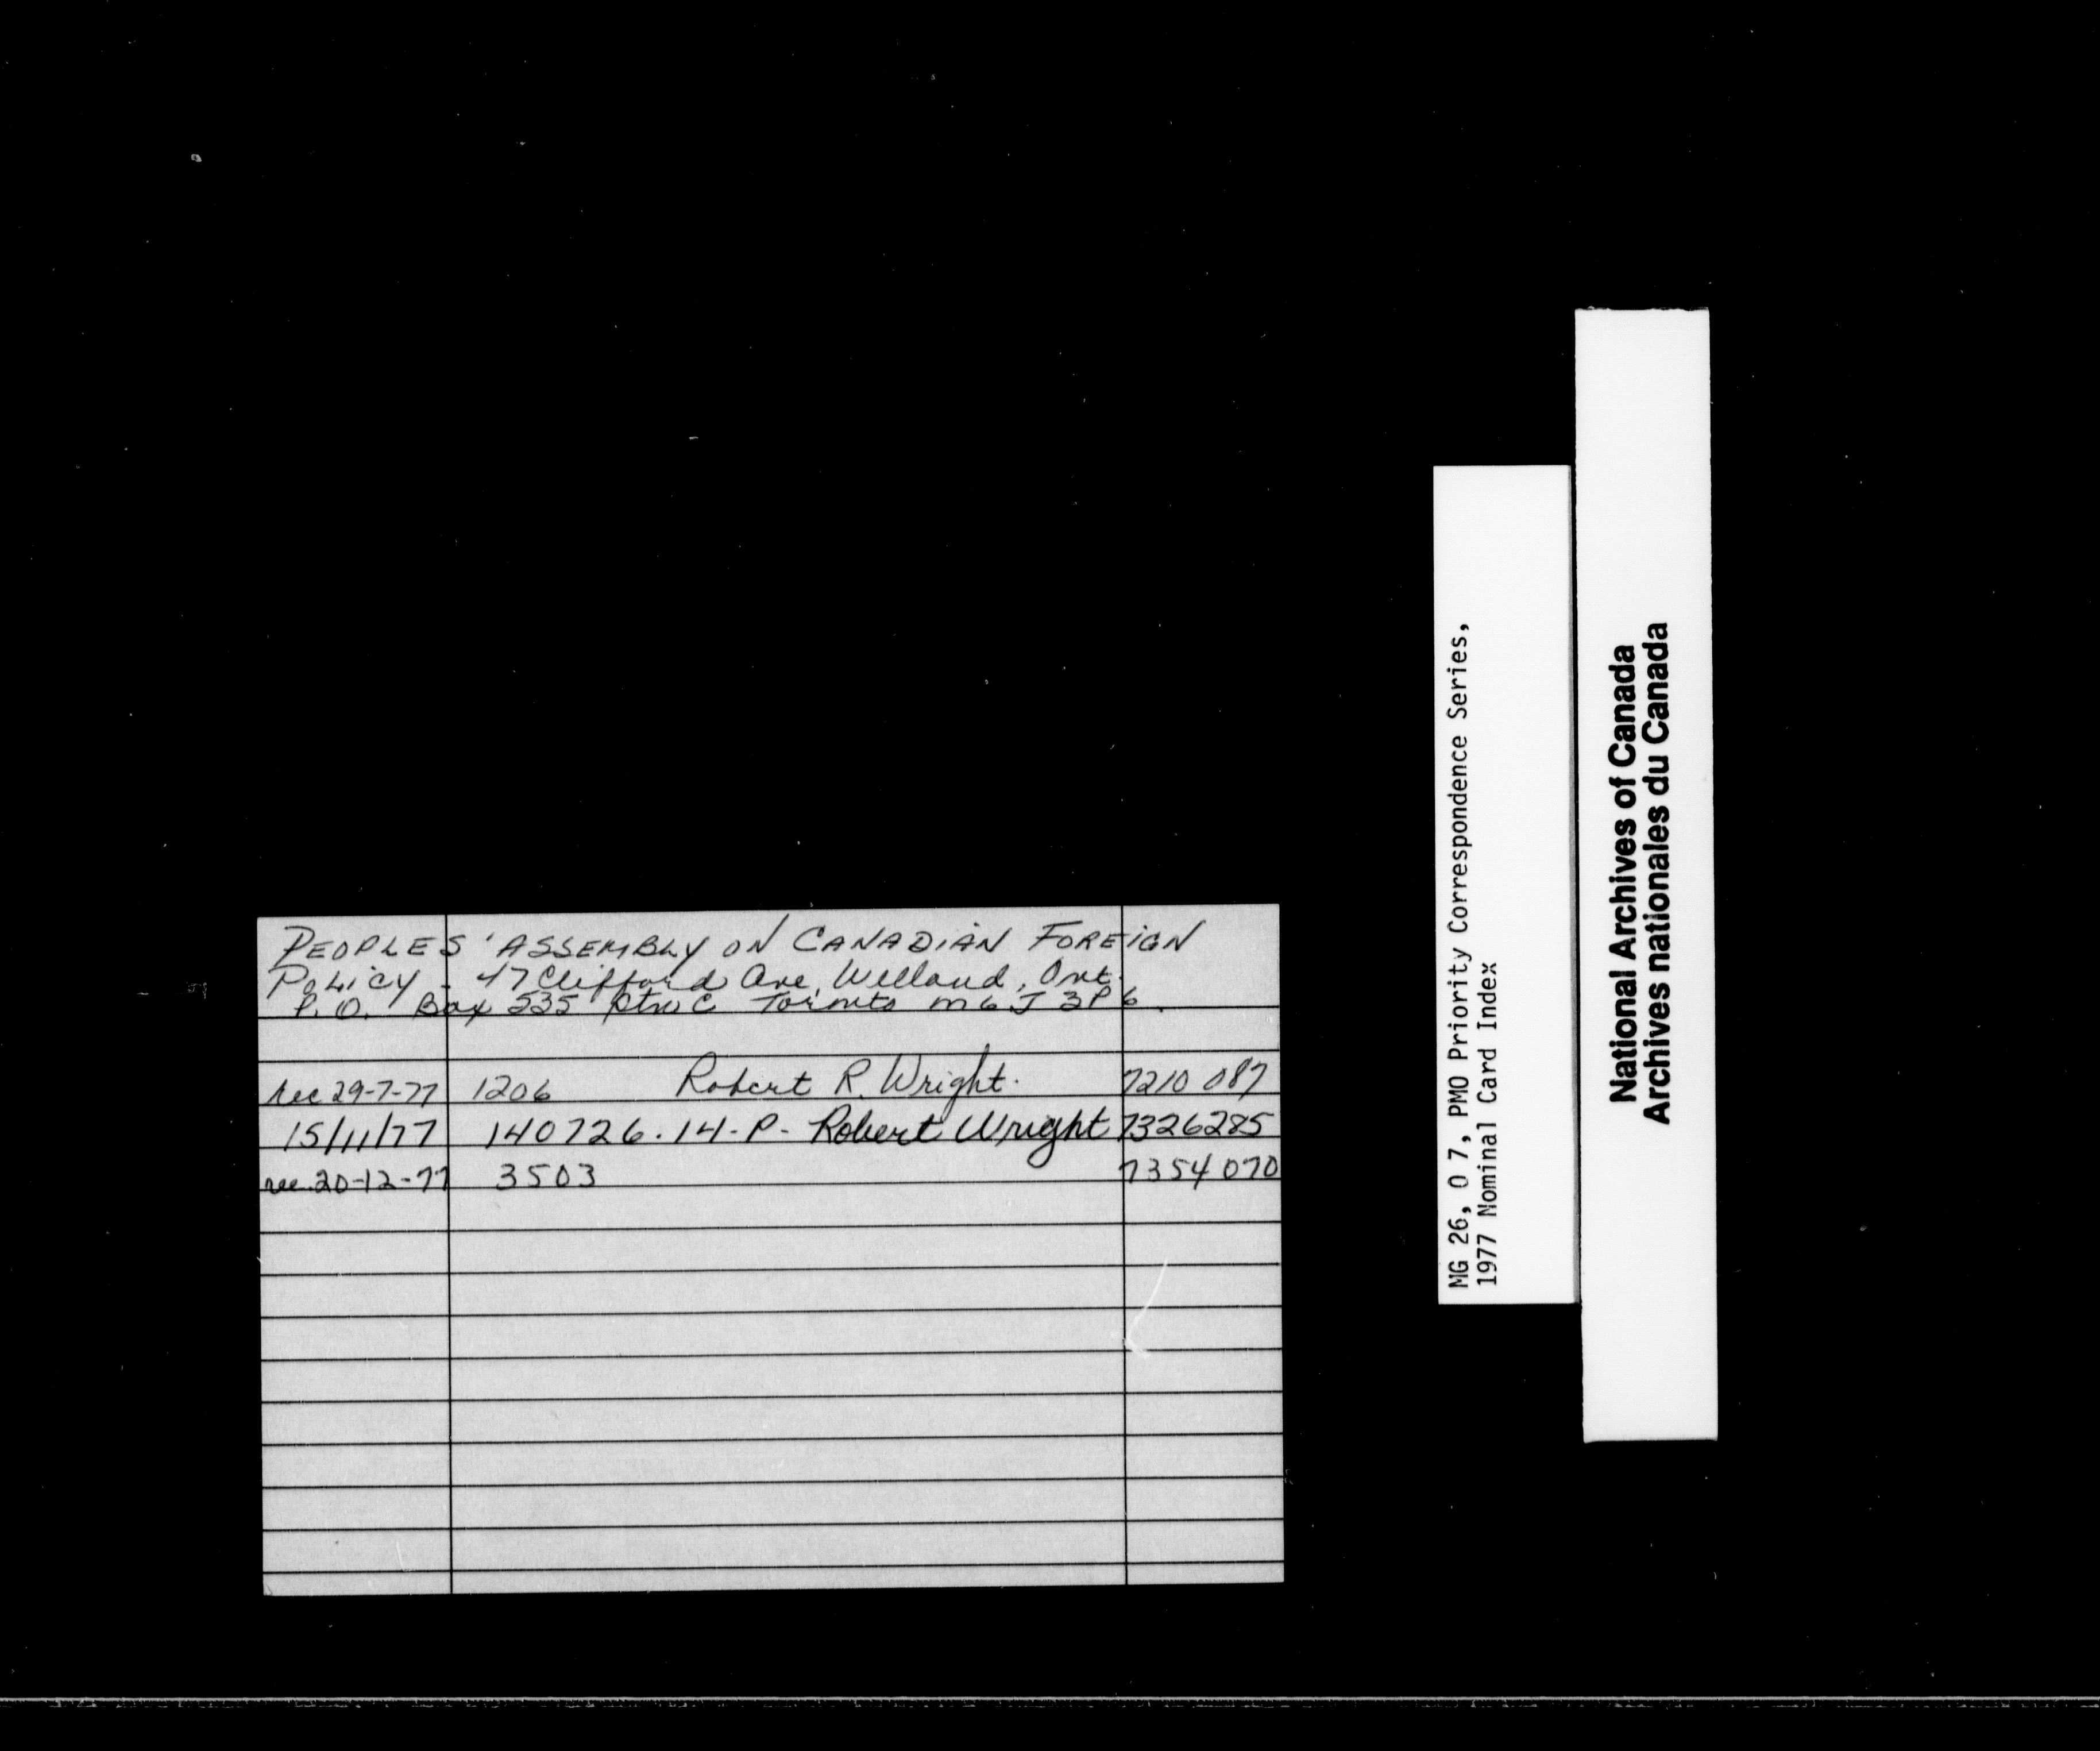 PEOPLES' ASSEMBLY ON CANADIAN FOREIGN
POLICY - 47 Clifford Ave, Welland, Ont.
P.O. Box 535 Stn C Toronto M6J 3P6
rec 29-7-77 1206 Robert R. Wright. 7210 087
15/11/77 140726.14-P- Robert Wright 7326285
rec. 20-12-77 3503 7354070
MG 26, O 7, PMO Priority Correspondence Series,
1977 Nominal Card Index
National Archives of Canada
Archives nationales du Canada